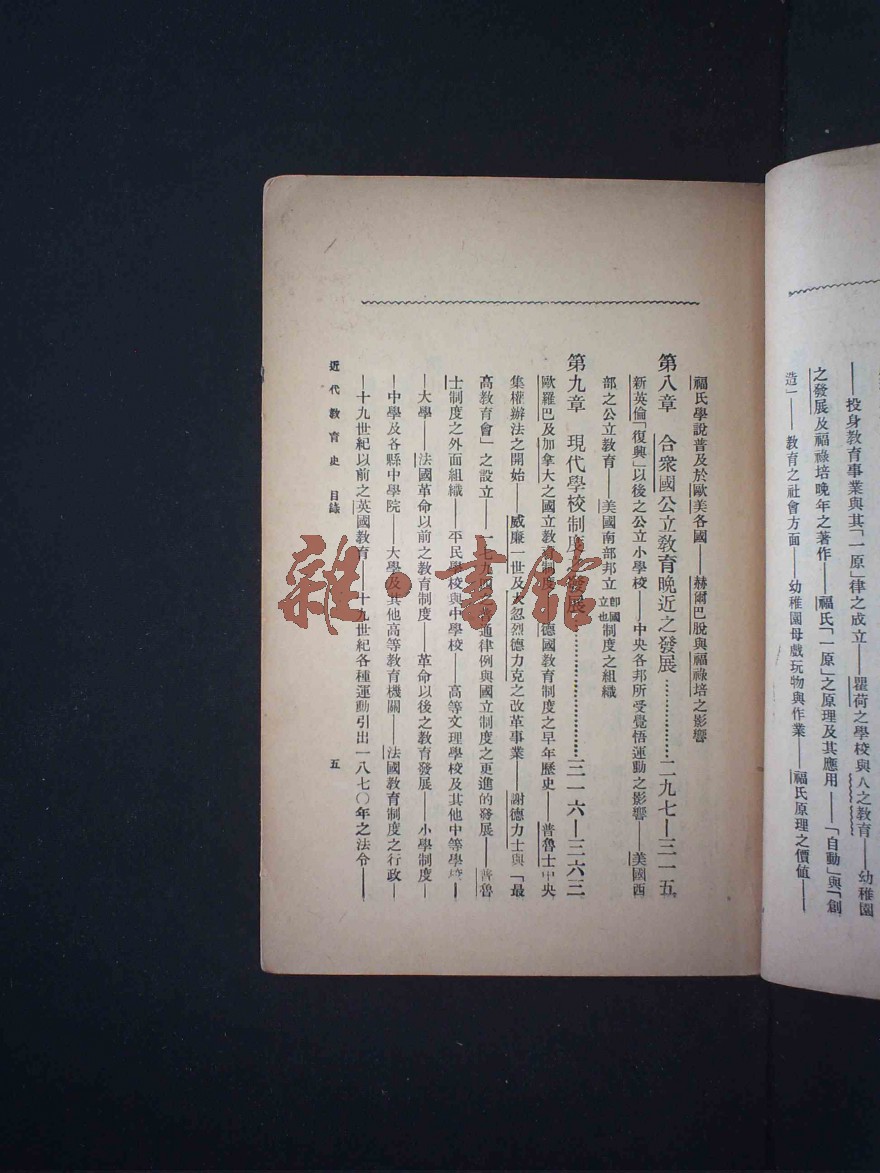 ——投身教育事業與其「一原」律之成立——瞿荷之學校與人之教育——幼稚園
之發展及福祿培晚年之著作——福氏「一原」之原理及其應用——「自動」與「創
造」——教育之社會方面——幼稚園母戲玩物與作業——福氏原理之價値——
福氏學說普及於歐美各國——赫爾巴脫與福祿培之影響
第八章 合衆國公立教育晩近之發展……………二九七—三一五
新英倫「復興」以後之公立小學校——中央各邦所受覺悟運動之影響——美國西
部之公立教育——美國南部邦立卽國立也制度之組織
第九章 現代學校制度 發展……………三一六—三六三
歐羅巴及加拿大之國立教育制度 德國教育制度之早年歷史——普魯士中央
集權辦法之開始——威廉一世及大忽烈德力克之改革事業——謝德力士與「最
高教育會」之設立——一七九四 普通律例與國立制度之更進的發展——普魯
士制度之外面組織——平民學校與中學校——高等文理學校及其他中等學校—
—大學——法國革命以前之教育制度——革命以後之教育發展——小學制度—
—中學及各縣中學院——大學及其他高等教育機關——法國教育制度之行政—
—十九世紀以前之英國教育——十九世紀各種運動引出一八七〇年之法令——
近代教育史 目錄 五
雜·書館